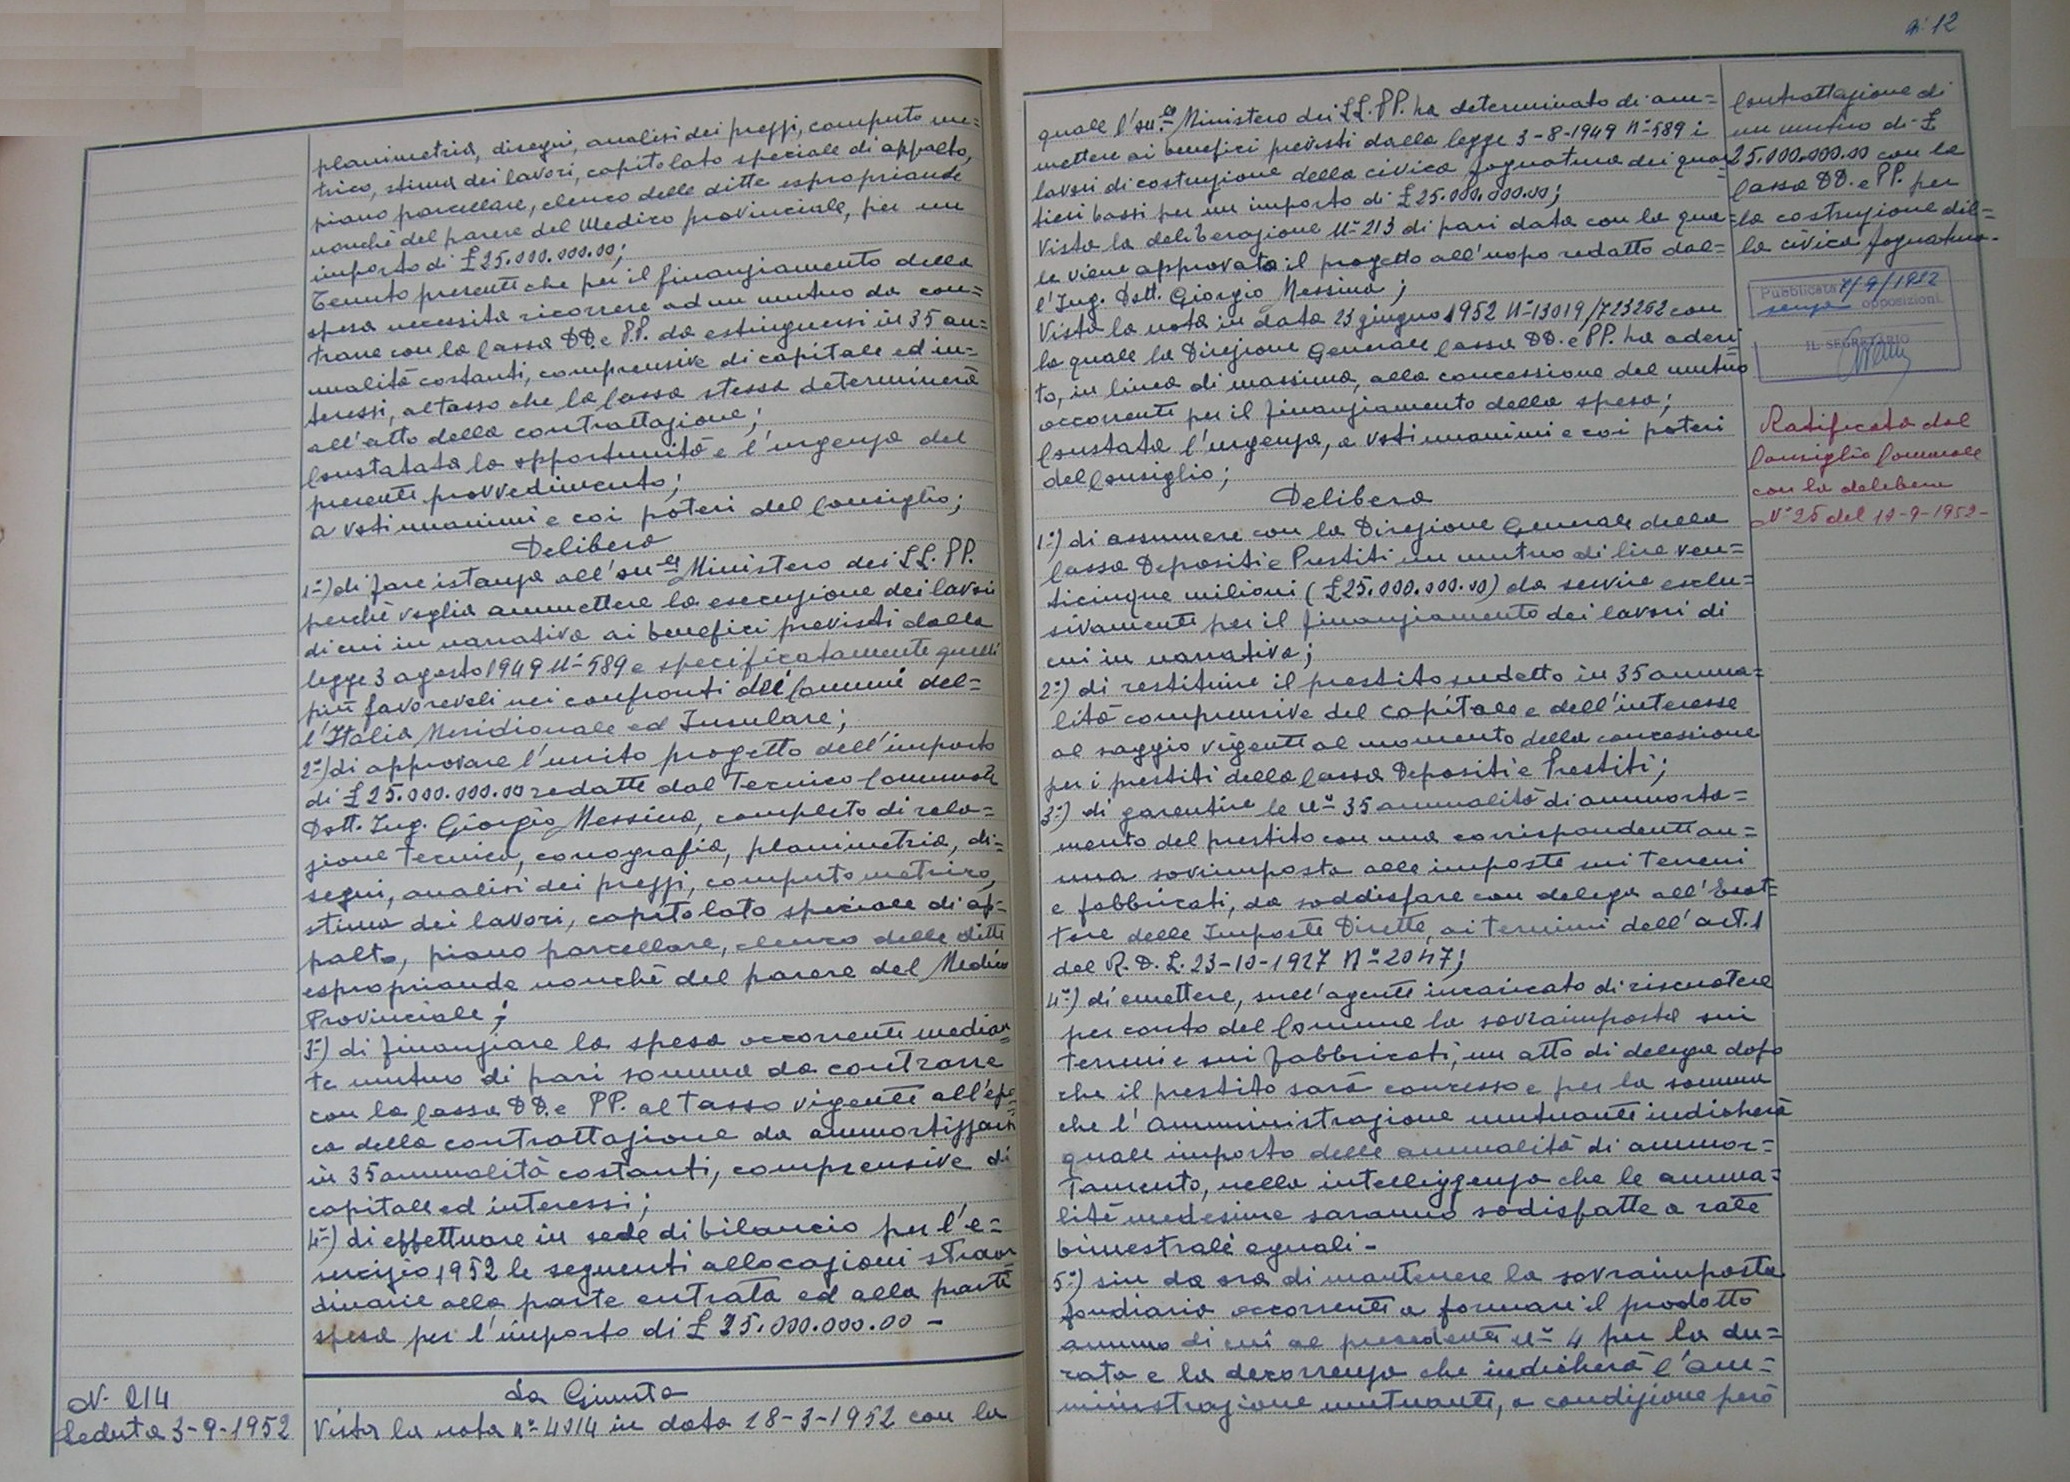 planimetria, disegni, analisi dei prezzi, computo me=
trico, stima dei lavori, capitolato speciale di appalto,
piano parcellare, elenco delle ditte espropriande
nonché del parere del Medico provinciale, per un
importo di £ 25.000.000.00;
Tenuto presente che per il finanziamento della
spesa necessita ricorrere ad un mutuo da con=
trarre con la Cassa DD. e PP. da estinguersi in 35 an=
nualità costanti, comprensive di capitale ed in=
teressi, al tasso che la Cassa stessa determinerà
all'atto della contrattazione;
Constatata la opportunità e l'urgenza del
presente provvedimento;
a voti unanimi e coi poteri del Consiglio;
Delibera
1°) di fare istanza all'on.le Ministero dei LL. PP.
perché voglia ammettere la esecuzione dei lavori
di cui in narrativa ai benefici previsti dalla
legge 3 agosto 1949 N° 589 e specificatamente quelli
più favorevoli nei confronti dei Comuni del=
l'Italia Meridionale ed Insulare;
2°) di approvare l'unito progetto dell'importo
di £ 25.000.000.00 redatto dal Tecnico Comunale
Dott. Ing. Giorgio Messina, completo di rela=
zione Tecnica, corografia, planimetria, di=
segni, analisi dei prezzi, computo metrico,
stima dei lavori, capitolato speciale di ap=
palto, piano parcellare, elenco delle ditte
espropriande nonché del parere del Medico
Provinciale;
3°) di finanziare la spesa occorrente median
te mutuo di pari somma da contrarre
con la Cassa DD. e PP. al tasso vigente all'epo=
ca della contrattazione da ammortizzarsi
in 35 annualità costanti, comprensive di
capitale ed interessi;
4°) di effettuare in sede di bilancio per l'e=
sercizio 1952 le seguenti allocazioni straor
dinarie alla parte entrata ed alla parte
spesa per l'importo di £ 25.000.000.00 -
N. 214
Seduta 3-9-1952
La Giunta
Vista la nota n° 4014 in data 18-3-1952 con la
12
quale l'on.le Ministero dei LL. PP. ha determinato di am=
mettere ai benefici previsti dalla legge 3-8-1949 N° 589 i
lavori di costruzione della civica fognatura dei quar
tieri bassi per un importo di £ 25.000.000.00;
Vista la deliberazione N° 213 di pari data con la qua=
le viene approvato il progetto all'uopo redatto dal=
l'Ing. Dott. Giorgio Messina;
Vista la nota in data 23 giugno 1952 N° 13019/723262 con
la quale la Direzione Generale Cassa DD. e PP. ha aderi
to, in linea di massima, alla concessione del mutuo
occorrente per il finanziamento della spesa;
Constata l'urgenza, a voti unanimi e coi poteri
del Consiglio;
Delibera
1°) di assumere con la Direzione Generale della
Cassa Depositi e Prestiti un mutuo di lire ven=
ticinque milioni (£ 25.000.000.00) da servire esclu=
sivamente per il finanziamento dei lavori di
cui in narrativa;
2°) di restituire il prestito sudetto in 35 annua=
lità comprensive del capitale e dell'interesse
al saggio vigente al momento della concessione
per i prestiti della Cassa Depositi e Prestiti;
3°) di garentire le n° 35 annualità di ammorta=
mento del prestito con una corrispondente an=
nua sovrimposta alle imposte sui terreni
e fabbricati, da soddisfare con delega all'Esat=
tore delle Imposte Dirette, ai termini dell'art. 1
del R. D. L. 23-10-1927 N° 2047;
4°) di emettere, sull'agente incaricato di riscuotere
per conto del Comune la sovraimposta sui
terreni e sui fabbricati, un atto di delega dopo
che il prestito sarà concesso e per la somma
che l'amministrazione mutuante indicherà
quale importo delle annualità di ammor=
tamento, nella intelliggenza che le annua=
lità medesime saranno sodisfatte a rate
bimestrali eguali -
5°) sin da ora di mantenere la sovraimposta
fondiaria occorrente a formare il prodotto
annuo di cui al precedente n° 4 per la du=
rata e la decorrenza che indicherà l'am=
ministrazione mutuante, a condizione però
Contrattazione di
un mutuo di £
25.000.000.00 con la
Cassa DD. e PP. per
la costruzione del=
la civica fognatura.
Pubblicata 7/9/1952
senza opposizioni
IL SEGRETARIO
Ratificata dal
Consiglio Comunale
con la delibera
N° 25 del 19-9-1952-